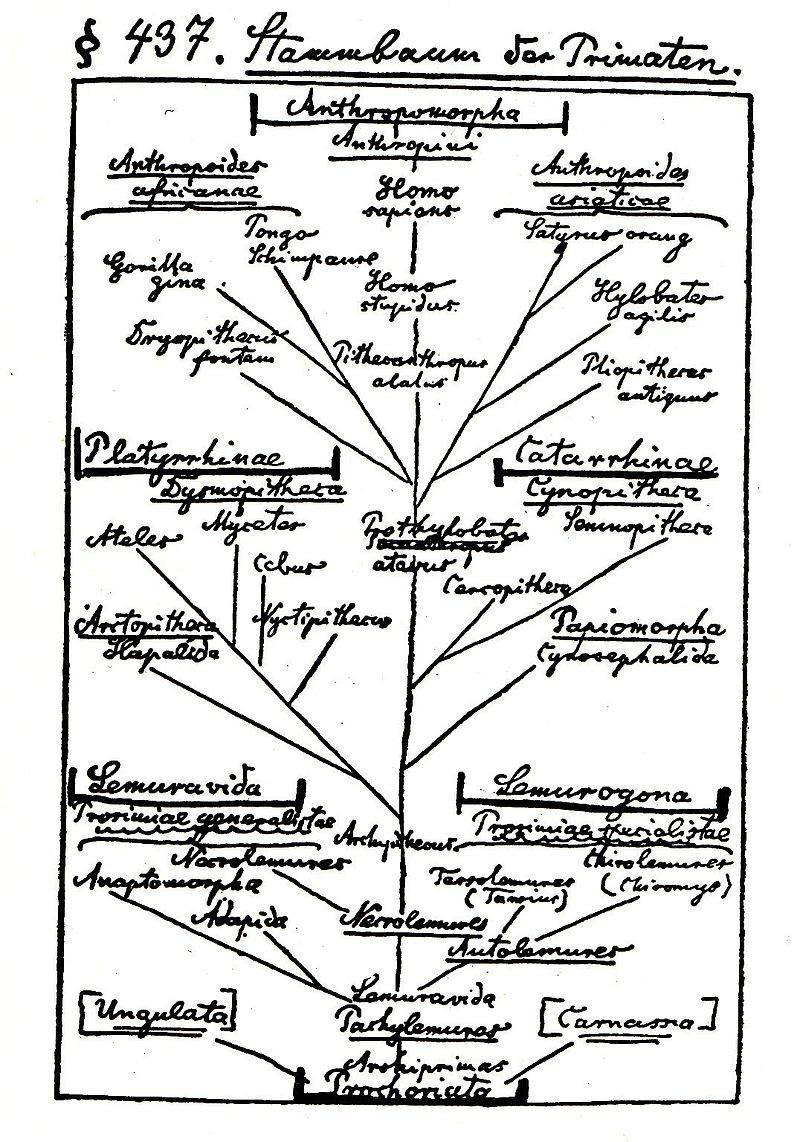 § 437. Stammbaum der Primaten.
Anthropomorpha
Anthropini
Anthropoides
africanae
Homo
sapiens
Anthropoides
asiaticae
Pongo
Schimpanse
Satyrus orang
Gorilla
gina.
Homo
stupidus.
Hylobates
agilis
Dryopithecus
fontani
Pithecanthropus
alalus
Pliopithecus
antiquus
Platyrrhinae
Catarrhinae
Dysmopitheca
Cynopitheca
Ateles
Mycetes
Prothylobates
atavus
Semnopitheca
Cebus
Cercopitheca
Arctopitheca
Nyctipithecus
Papiomorpha
Hapalida
Cynocephalida
Lemuravida
Lemurogona
Prosimiae generalistae
Archipithecus
Prosimiae specialistae
Necrolemures
Chirolemures
(Chiromys)
Anaptomorpha
Tarsolemures
(Tarsius)
Adapida
Necrolemures
Autolemures
Lemuravida
[Ungulata]
Pachylemures
[Carnassia]
Archiprimas
Prochoriata